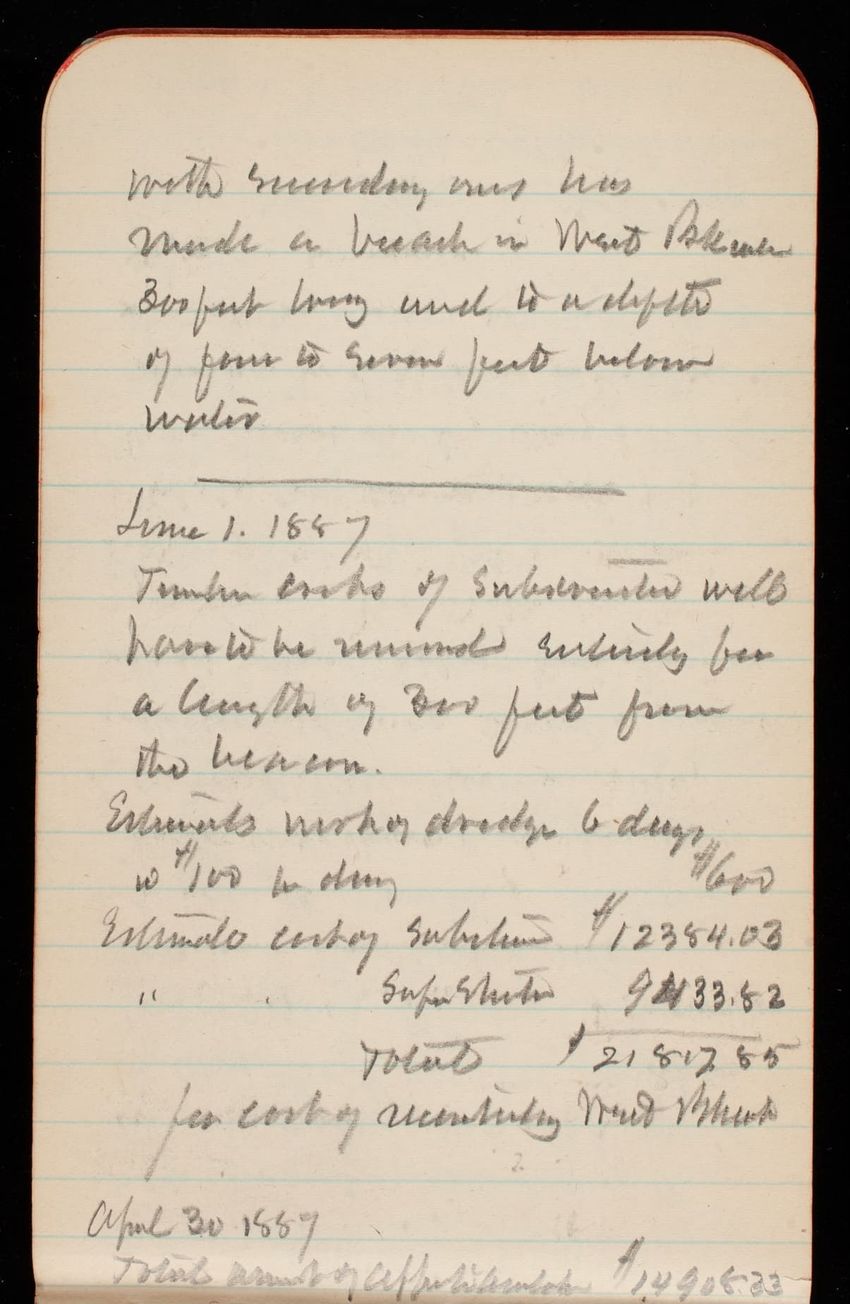 with secondary ones has
made a breach in West Bkwater
300 feet long and to a depth
of four to seven feet below
water
June 1. 1887
Timber cribs of Substructure will
have to be removed entirely for
a length of 300 feet from
the beacon.
Estimate work of dredge 6 days
@ $100 per day $600
Estimate cost of Substure $12384.03
" SupStuctu 9433.82
Total $21817 85
for cost of rebuilding West Bkwat
April 30 1887
Total amount of $14908.33